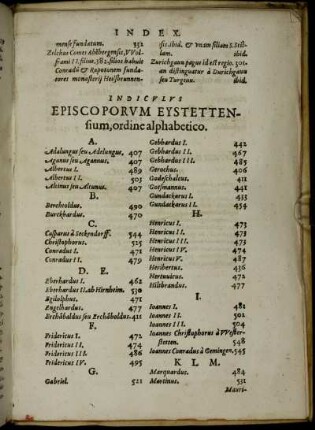 INDEX.
mense fundatum. 352
Zelchus Comes Abſbergenſis, VVol-
fram II. filius. 382. filios habuit
Conradū & Rapotonem funda-
tores monaſterij Heilſbrunnen-
ſis. ibid. & vnam filiam S. Stil-
lam. ibid.
Zurichgauu pagus id eſt regio. 501
an diſtinguatur à Durichgauu
ſeu Turgeuu. ibid.
INDICVLVS
EPISCOPORVM EYSTETTEN-
ſium, ordine alphabetico.
A.
Adalungus ſeu Adelungus. 407
Aganus ſeu Agannus. 407
Albertus I. 489
Albertus II. 505
Altinus ſeu Altunus. 407
B.
Bertholdus. 490
Burckhardus. 470
C.
Caſparus à Seckendorff. 544
Chriſtophorus. 525
Conradus I. 471
Conradus II. 479
D. E.
Eberhardus I. 462
Eberhardus II. ab Hirnheim. 530
Egilolphus. 471
Engelhardus. 477
Erchābaldus ſeu Erchāboldus. 411
F.
Fridericus I. 472
Fridericus II. 474
Fridericus III. 486
Fridericus IV. 495
G.
Gabriel. 521
Gebhardus I. 442
Gebhardus II. 467
Gebhardus III. 485
Gerochus. 406
Godeſchalcus. 421
Goſmannus. 441
Gundackarus I. 453
Gundackarus II. 454
H.
Henricus I. 473
Henricus II. 473
Henricus III. 473
Henricus IV. 474
Henricus V. 487
Heribertus. 436
Hertnidus. 472
Hildebrandus. 477
I.
Ioannes I. 481
Ioannes II. 502
Ioannes III. 504
Ioannes Chriſtophorus à VVeſter-
ſtetten. 548
Ioannes Conradus à Gemingen. 545
K L M.
Marquardus. 484
Martinus. 531
Mauri-